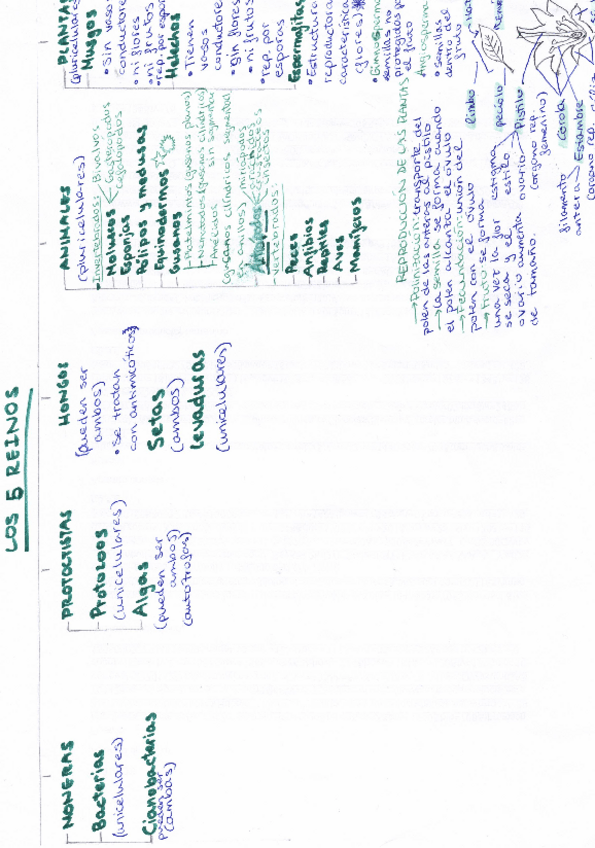 LOS 5 REINOS
MONERAS
Bacterias
(unicelulares)
Cianobacterias
(pueden ser
ambas)
PROTOCTISTAS
Protozoos
(unicelulares)
Algas
(pueden ser
ambos)
(autótrofas)
HONGOS
(pueden ser
ambos)
• Se tratan
con antimicóticos)
Setas
(ambos)
Levaduras
(unicelulares)
ANIMALES
(pluricelulares)
Invertebrados: Bivalvos
Moluscos Gasterópodos
Cefalópodos
Esponjas
Pólipos y medusas
Equinodermos
Gusanos
Platelmintos (gusanos planos)
Nematodos (gusanos cilíndricos)
sin segmentar
Anélidos
(gusanos cilíndricos segmentados
en anillos) miriápodos
Artrópodos
insectos
• vertebrados:
Peces
Anfibios
Reptiles
Aves
Mamíferos
PLANTAS
(pluricelulares
Musgos
• Sin vasos
conductores
• ni flores
• ni frutos
• rep. por esp
Helechos
• Tienen
vasos
conductore
• Sin flores
• ni frutos
• rep. por
esporas
Espermafitas
• Estructura
reproductora
característica
(flores)
• Gimnosperm
semillas no
protegidas p
el fruto
Angiosperma
• Semillas
dentro del
fruto
REPRODUCCIÓN DE LAS PLANTAS
→ Polinización: transporte del
polen de las anteras al pistilo
→ la semilla se forma cuando
el polen alcanza el óvulo
→ Fecundación: unión del
polen con el óvulo
→ fruto: se forma
una vez la flor
se seca y el
ovario aumenta
de tamaño.
Limbo
pecíolo
Pistilo
(órgano rep.
femenino)
estigma
estilo
ovario
Corola
Estambre
(órgano rep.
filamento
antera